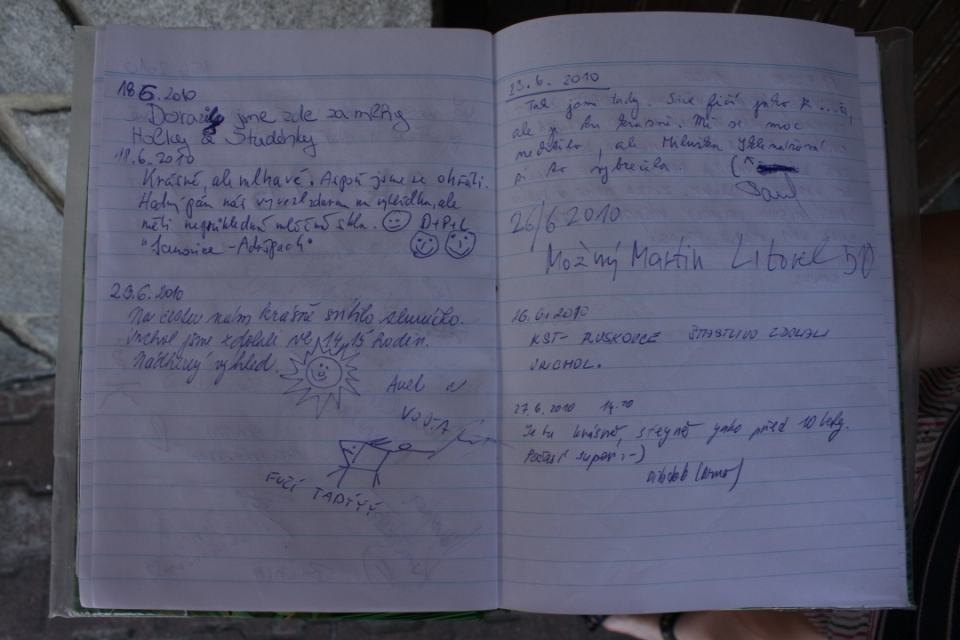 18.6.2010
Dorazily jsme zde za mlhy
Holky & Studánky
19.6.2010
Krásně, ale mlhavé. Aspoň jsme se ohřáli.
Hodný pán nás vyvezl zdarma na vyhlídku, ale
měli neprůhledná mléčná skla. D+P+L
"Janovice - Adršpach"
23.6.2010
Na cestu nám krásně svítilo sluníčko.
Vrchol jsme zdolali ve 14,15 hodin.
Nádherný výhled.
VOJTA
FUČÍ TADYYÝ
23.6. 2010
Tak jsem tady. Sice fičí jako k...a,
ale je tu krásně. Mě se moc
nechtělo, ale Miluška
si to vybrečela
26/6 2010
Možný Martin Litovel 50
26.6.2010
KST- RUSKOVCE ŠTASTLIVO ZDOLALI
VRCHOL.
27.6.2010 14.20
Je tu krásně, stejně jako před 10 lety.
Počasí super :-)